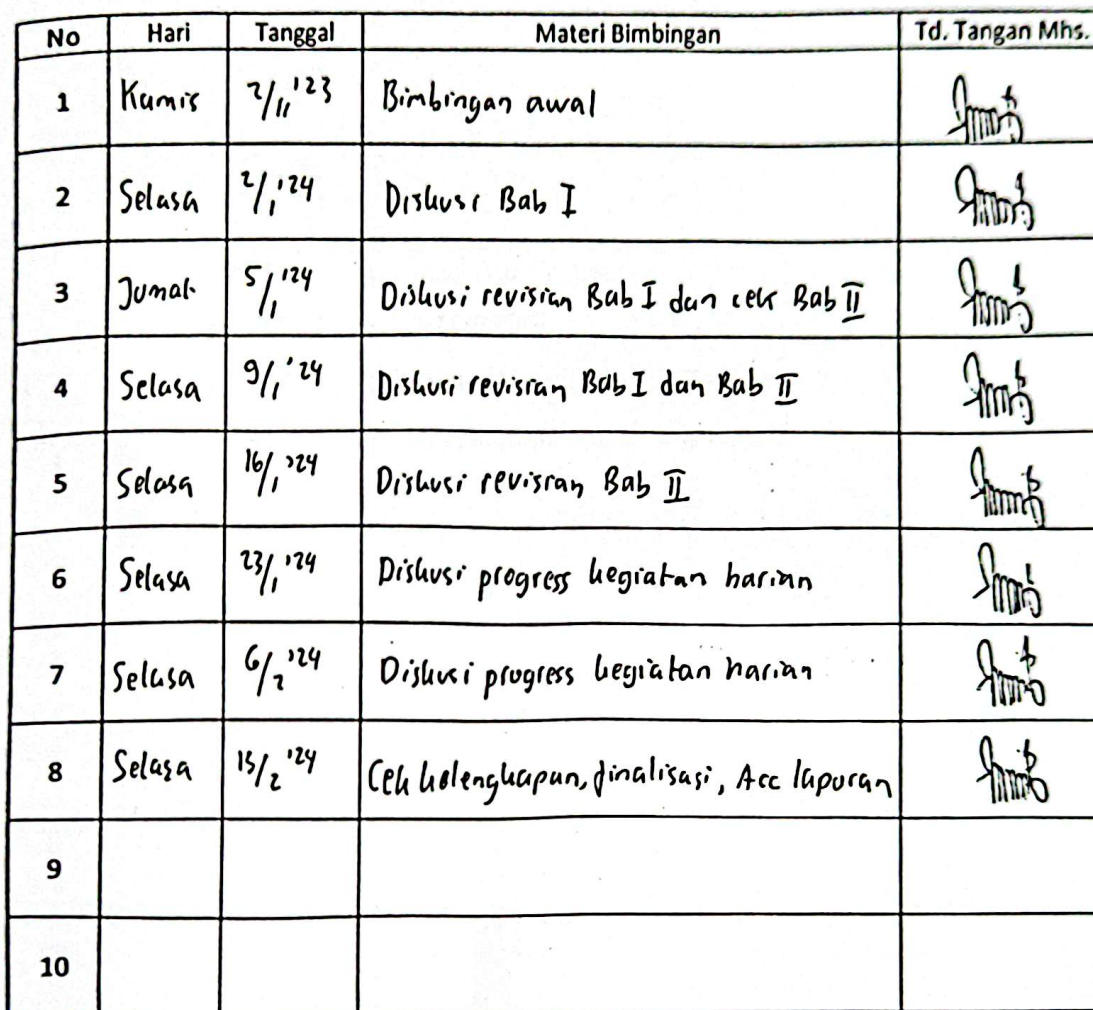 No Hari Tanggal Materi Bimbingan Td. Tangan Mhs.
1 Kamis 2/11 '23 Bimbingan awal
2 Selasa 2/1 '24 Diskusi Bab I
3 Jumat 5/1 '24 Diskusi revisian Bab I dan cek Bab II
4 Selasa 9/1 '24 Diskusi revisian Bab I dan Bab II
5 Selasa 16/1 '24 Diskusi revisian Bab II
6 Selasa 23/1 '24 Diskusi progress kegiatan harian
7 Selasa 6/2 '24 Diskusi progress kegiatan harian
8 Selasa /2 '24 Cek kelengkapan, finalisasi, Acc laporan
9
10